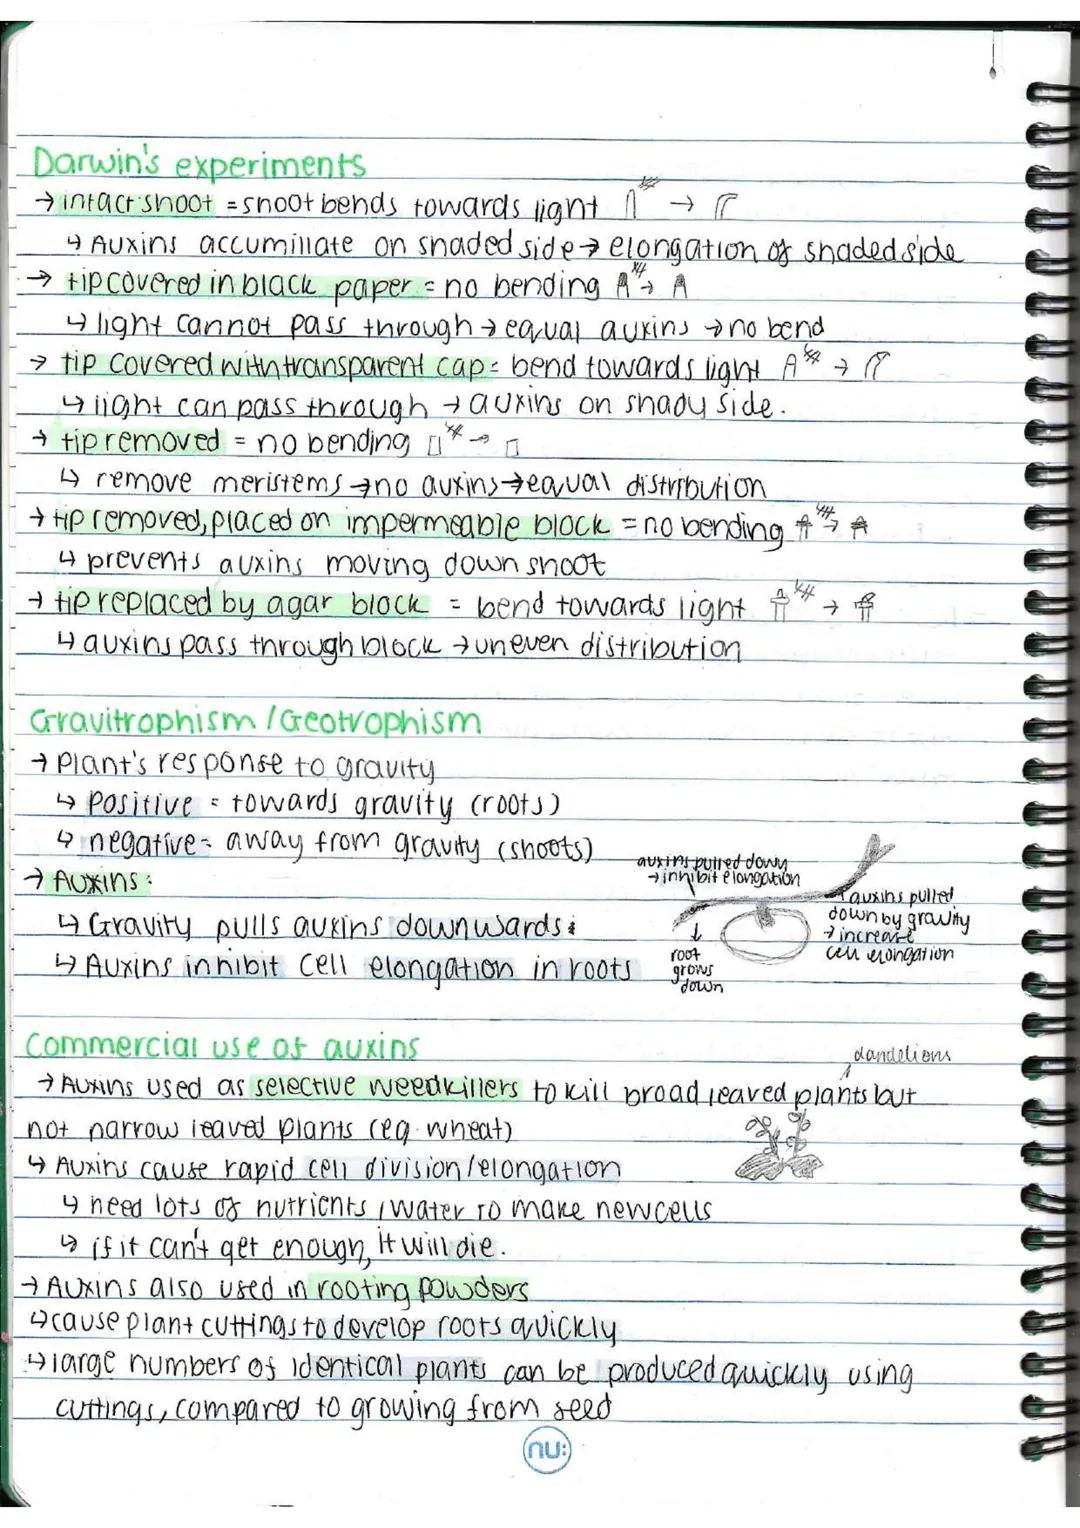 Darwin's experiments
→ intact shoot = shoot bends towards light →
↳ Auxins accumillate on shaded side → elongation of shaded side
→ tip covered in black paper = no bending →
↳ light cannot pass through → equal auxins → no bend
→ tip covered with transparent cap = bend towards light →
↳ light can pass through → auxins on shady side.
→ tip removed = no bending →
↳ remove meristems → no auxins → equal distribution
→ tip removed, placed on impermeable block = no bending →
↳ prevents auxins moving down shoot
→ tip replaced by agar block = bend towards light →
↳ auxins pass through block → uneven distribution
Gravitrophism / Geotrophism
→ Plant's response to gravity
↳ Positive = towards gravity (roots)
↳ negative = away from gravity (shoots)
→ Auxins:
↳ Gravity pulls auxins downwards
↳ Auxins inhibit cell elongation in roots
auxins pulled down
→ inhibit elongation
auxins pulled
down by gravity
→ increase
cell elongation
↓
root
grows
down
Commercial use of auxins
dandelions
→ Auxins used as selective weedkillers to kill broad leaved plants but
not narrow leaved plants (eg. wheat)
↳ Auxins cause rapid cell division/elongation
↳ need lots of nutrients / water to make new cells
↳ if it can't get enough, it will die.
→ Auxins also used in rooting powders
↳ cause plant cuttings to develop roots quickly
↳ large numbers of identical plants can be produced quickly using
cuttings, compared to growing from seed
nu: